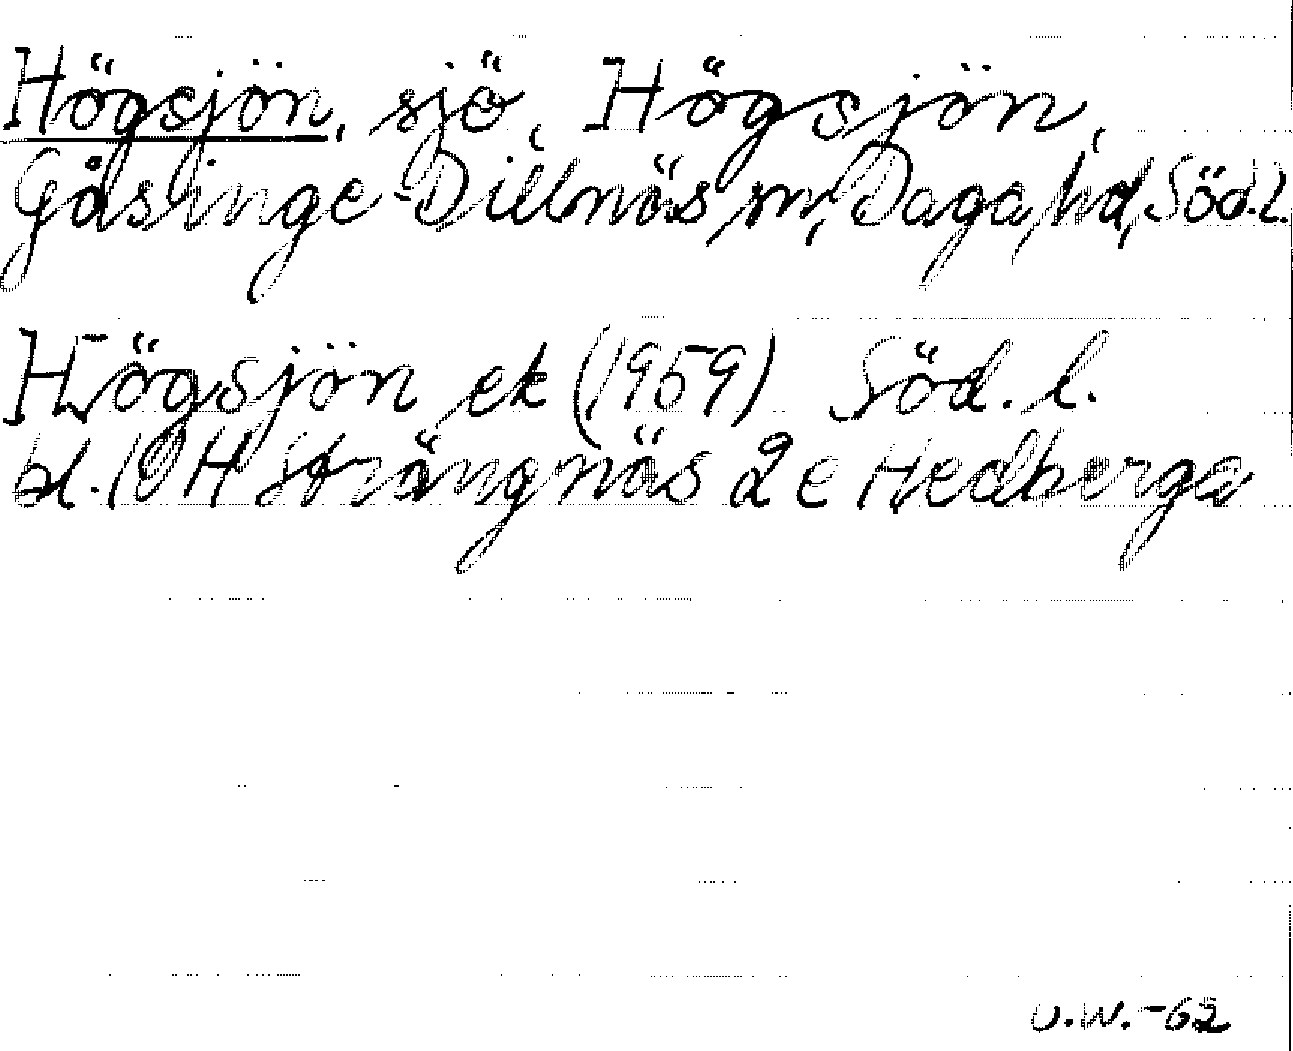 Högsjön, sjö, Högsjön,
Gåsinge-Dillnäs sn, Daga hd, Söd.l.
Högsjön ek (1959) Söd. l.
bl. 10 H Strängnäs 2 e Hedberga
U.W. -62